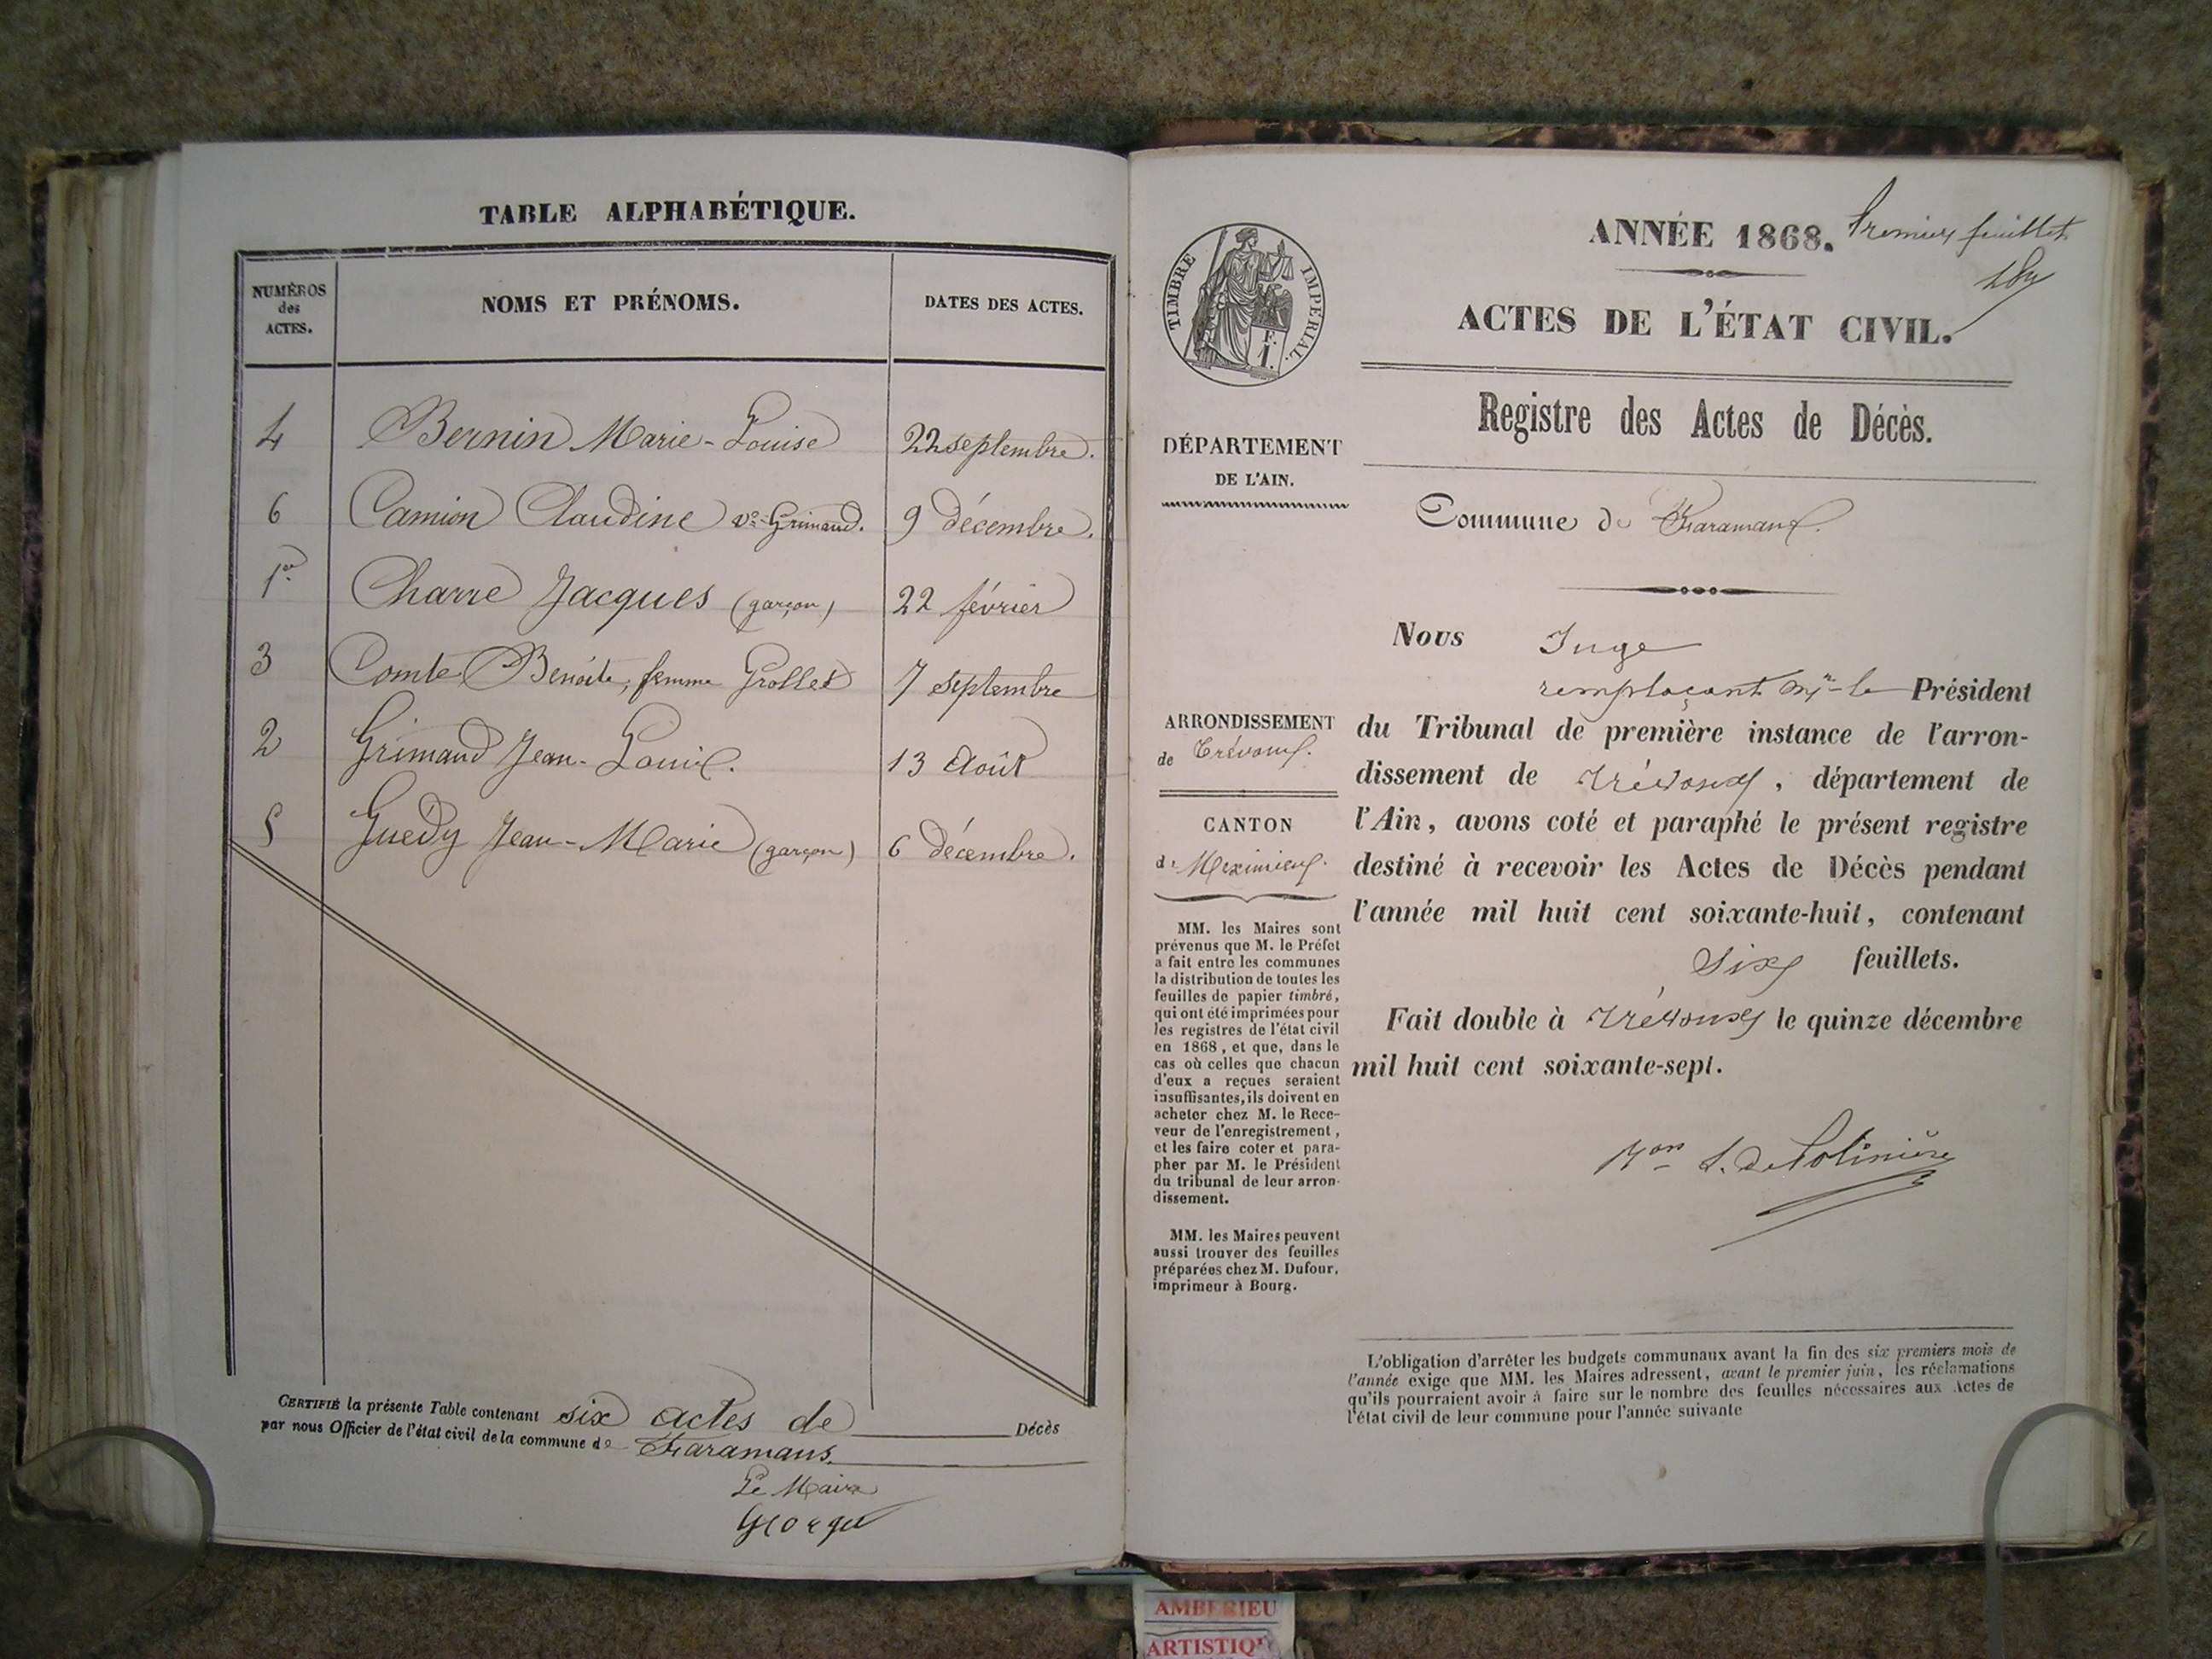 TABLE ALPHABÉTIQUE.
NUMÉROS des ACTES.
NOMS ET PRÉNOMS.
DATES DES ACTES.
4 Bernin Marie-Louise 22 septembre.
6 Camion Claudine ve Grimaud. 9 décembre.
1er Charre Jacques (garçon) 22 février
3 Comte Benoite, femme Grollet 7 septembre
2 Grimaud Jean-Louis. 13 Août
5 Guedy Jean-Marie (garçon) 6 décembre.
CERTIFIÉ la présente Table contenant six actes de Décès
par nous Officier de l'état civil de la commune de Faramans.
Le Maire
George
TIMBRE IMPÉRIAL.
F.
1.
ANNÉE 1868. Premier feuillet
ACTES DE L'ÉTAT CIVIL.
Registre des Actes de Décès.
DÉPARTEMENT
DE L'AIN.
Commune de Faramans.
ARRONDISSEMENT
de Trévoux.
CANTON
de Meximieux.
MM. les Maires sont
prévenus que M. le Préfet
a fait entre les communes
la distribution de toutes les
feuilles de papier timbré,
qui ont été imprimées pour
les registres de l'état civil
en 1868, et que, dans le
cas où celles que chacun
d'eux a reçues seraient
insuffisantes, ils doivent en
acheter chez M. le Rece-
veur de l'enregistrement,
et les faire coter et para-
pher par M. le Président
du tribunal de leur arron-
dissement.
MM. les Maires peuvent
aussi trouver des feuilles
préparées chez M. Dufour,
imprimeur à Bourg.
Nous Juge
remplaçant Mr le Président
du Tribunal de première instance de l'arron-
dissement de Trévoux, département de
l'Ain, avons coté et paraphé le présent registre
destiné à recevoir les Actes de Décès pendant
l'année mil huit cent soixante-huit, contenant
Six feuillets.
Fait double à Trévoux le quinze décembre
mil huit cent soixante-sept.
de Polinière
L'obligation d'arrêter les budgets communaux avant la fin des six premiers mois de
l'année exige que MM. les Maires adressent, avant le premier juin, les réclamations
qu'ils pourraient avoir à faire sur le nombre des feuilles nécessaires aux Actes de
l'état civil de leur commune pour l'année suivante
AMBERIEU
ARTISTIQ